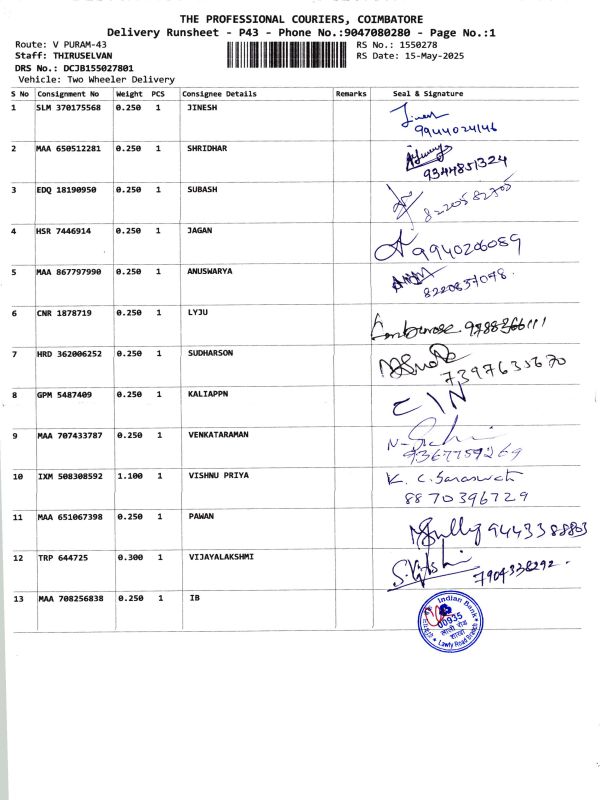 THE PROFESSIONAL COURIERS, COIMBATORE
Delivery Runsheet - P43 - Phone No.:9047080280 - Page No.:1
Route: V PURAM-43
RS No.: 1550278
Staff: THIRUSELVAN
RS Date: 15-May-2025
DRS No.: DCJB155027801
Vehicle: Two Wheeler Delivery
S No Consignment No Weight PCS Consignee Details Remarks Seal & Signature
1 SLM 370175568 0.250 1 JINESH Jinesh
9944024146
2 MAA 650512281 0.250 1 SHRIDHAR
9344851324
3 EDQ 18190950 0.250 1 SUBASH
8220582705
4 HSR 7446914 0.250 1 JAGAN 9940206089
5 MAA 867797990 0.250 1 ANUSWARYA
8220837078.
6 CNR 1878719 0.250 1 LYJU
7 HRD 362006252 0.250 1 SUDHARSON
7397635670
8 GPM 5487409 0.250 1 KALIAPPN
9 MAA 707433787 0.250 1 VENKATARAMAN
9367759269
10 IXM 508308592 1.100 1 VISHNU PRIYA K. C. Saraswati
8870396729
11 MAA 651067398 0.250 1 PAWAN 9443388803
12 TRP 644725 0.300 1 VIJAYALAKSHMI
7904338292.
13 MAA 708256838 0.250 1 IB
Indian Bank
00935
लाली रोड
शाखा
Lawly Road Branch